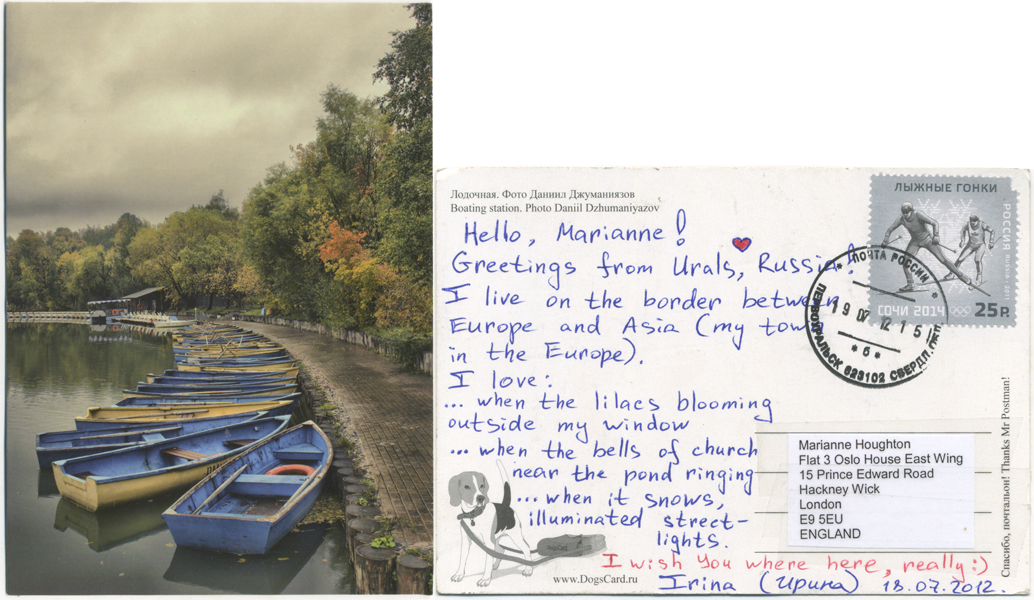 Лодочная. Фото Даниил Джуманиязов
Boating station. Photo Daniil Dzhumaniyazov
Hello, Marianne!
Greetings from Urals, Russia!
I live on the border between
Europe and Asia (my town
in the Europe).
I love:
... when the lilacs blooming
outside my window
... when the bells of church
near the pond ringing
... when it snows,
illuminated street-
lights.
I wish You where here, really :)
Irina (Ирина) 18.07.2012.
www.DogsCard.ru
ЛЫЖНЫЕ ГОНКИ
РОССИЯ
СОЧИ 2014
25 Р.
ПОЧТА РОССИИ
623102 СВЕРДЛ.
* б *
Marianne Houghton
Flat 3 Oslo House East Wing
15 Prince Edward Road
Hackney Wick
London
E9 5EU
ENGLAND
Спасибо, почтальон! Thanks Mr Postman!